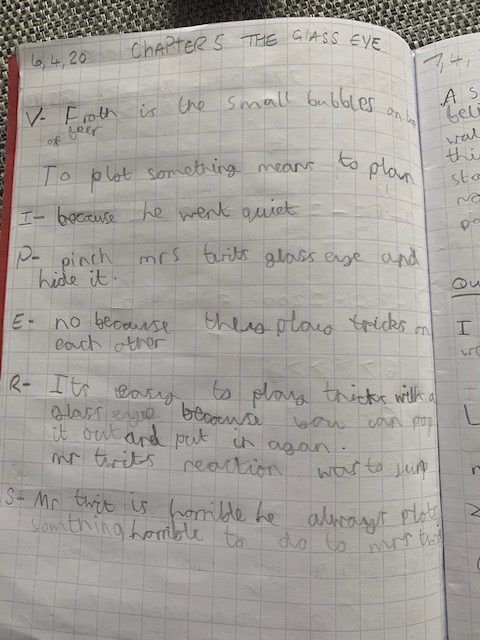 6,4,20 ChAPTER 5 THE GLASS EYE
V- Froth is the small bubbles on
of beer
To plot something means to plan
I- because he went quiet
P- pinch mrs twits glass eye and
hide it.
E- no because they play tricks on
each other
R- Its easy to play tricks with a
glass eye because you can pop
it out and put in again.
mr twits reaction was to jump
S- Mr twit is horrible he always plots
somthing horrible to do to mrs twit
7,4,
A S
beli
wal
thi
sto
no
Qu
I